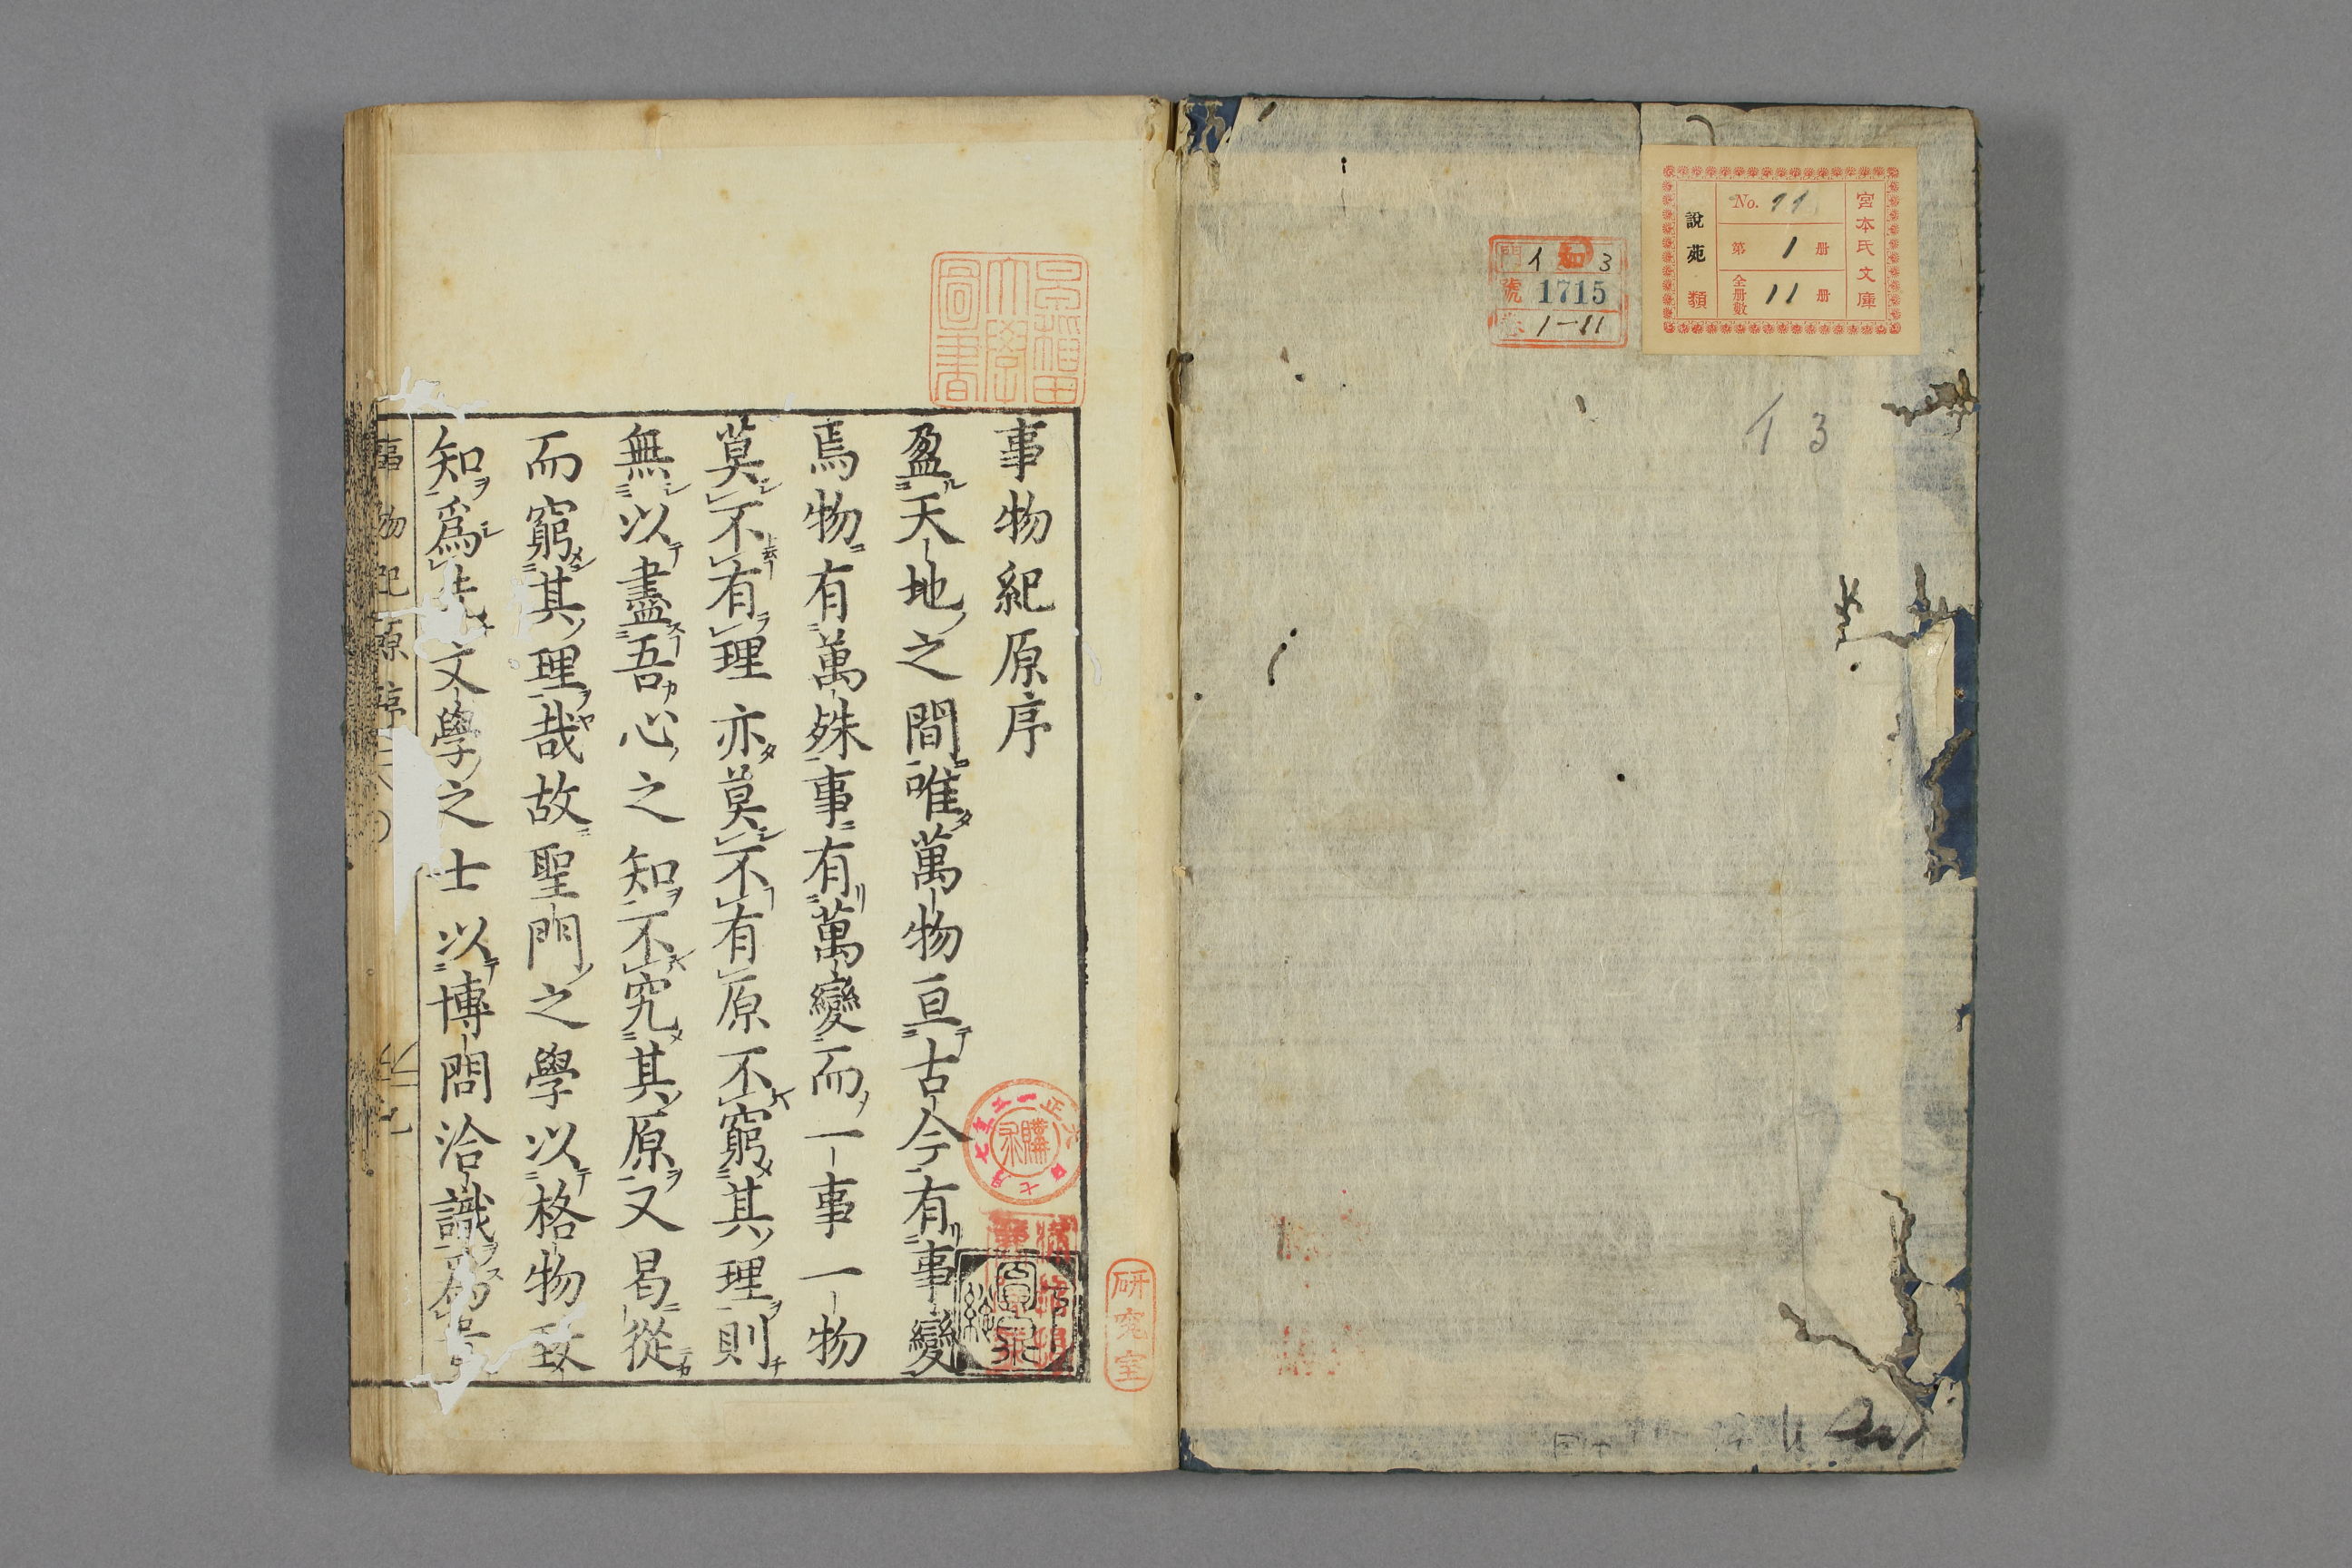 宮本氏文庫
No. 11
第 1 册
全册數 11 册
說苑類
門 イ 3
號 1715
卷 1-11
イ 3
早稲田大學圖書
事物紀原序
盈天地之間唯萬物亘古今有事變
焉物有萬殊事有萬變而一事一物
莫不有理亦莫不有原不窮其理則
無以盡吾心之知不究其原又曷從
而窮其理哉故聖門之學以格物致
知爲先文學之士以博問洽識爲
事物紀原序
購求
研究室